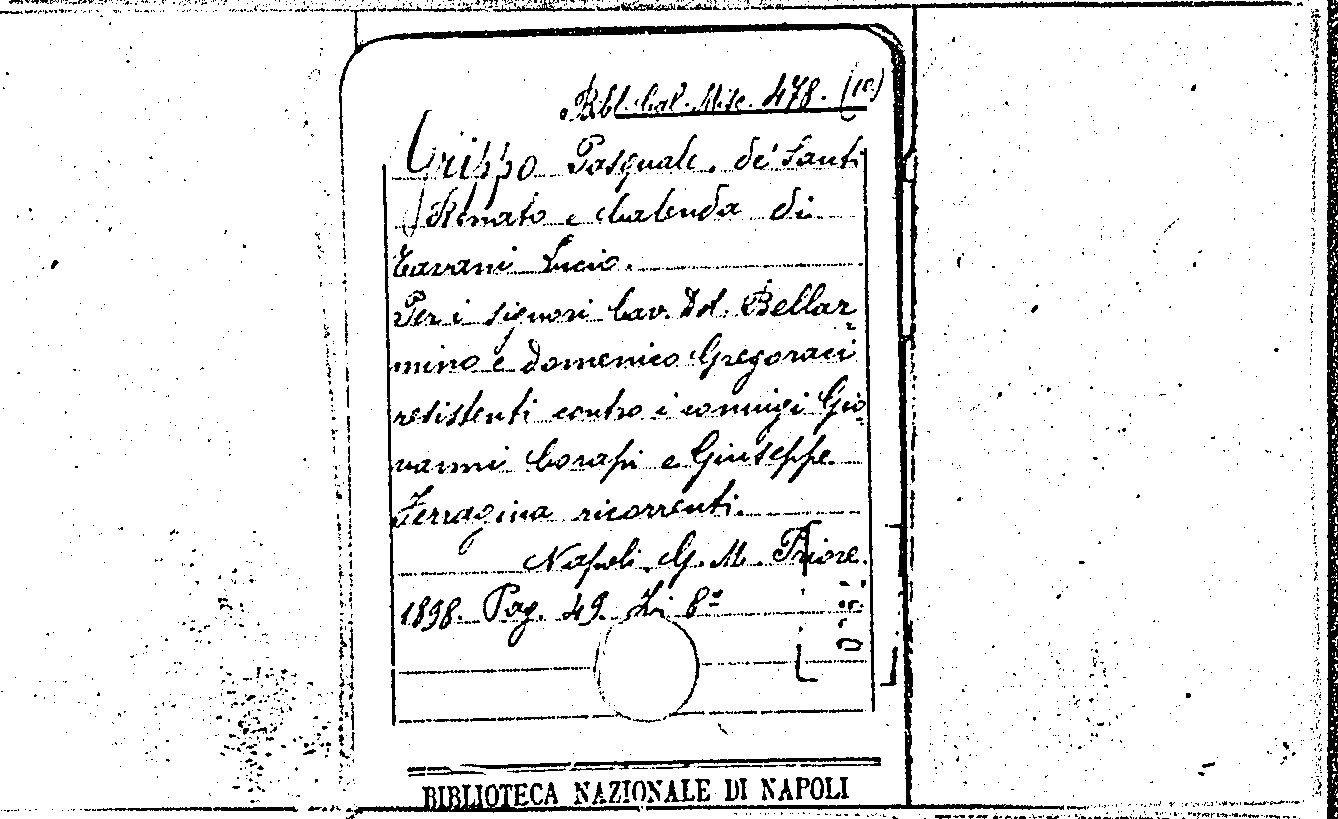 Bibl. Cal. Misc. 478. (10)
Grippo Pasquale, de' Santi
Renato e Calenda di
Tavani Lucio.
Per i signori Cav. Dd. Bellar
mino e Domenico Gregoraci
resistenti contro i coniugi Gio
vanni Corapi e Giuseppe
Ferragina ricorrenti.
Napoli. G. M. Priore.
1898. Pag. 49. In 8°
BIBLIOTECA NAZIONALE DI NAPOLI